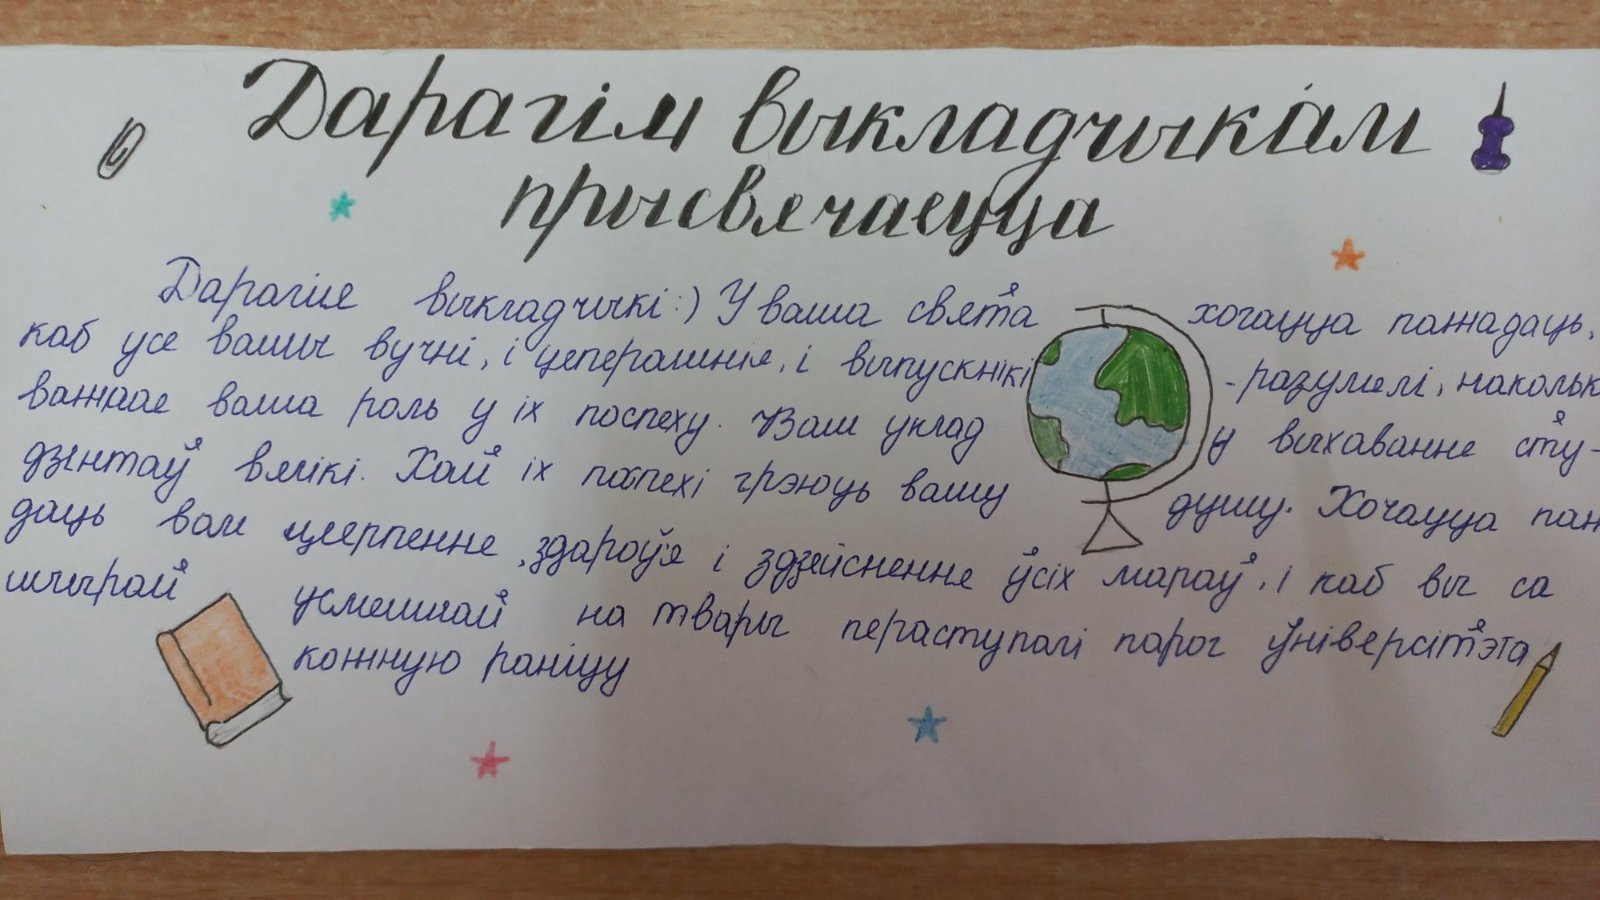 Дарагім выкладчыкам
прысвячаецца
Дарагия выкладчыкі:) У ваша свята хочацца пажадаць,
каб усе вашы вучні, і цеперашнія, і выпускнікі - разумелі, наколькі
важнае ваша роль у іх поспеху. Ваш уклад у выхаванне сту-
дзентаў вялікі. Хай іх поспехі грэюць вашу душу. Хочацца паж
даць вам цярпенне, здароўя і здзяйсненне ўсіх мараў, і каб вы са
шчырай усмешкай на твары пераступалі парог ўніверсітэта
кожную раніцу